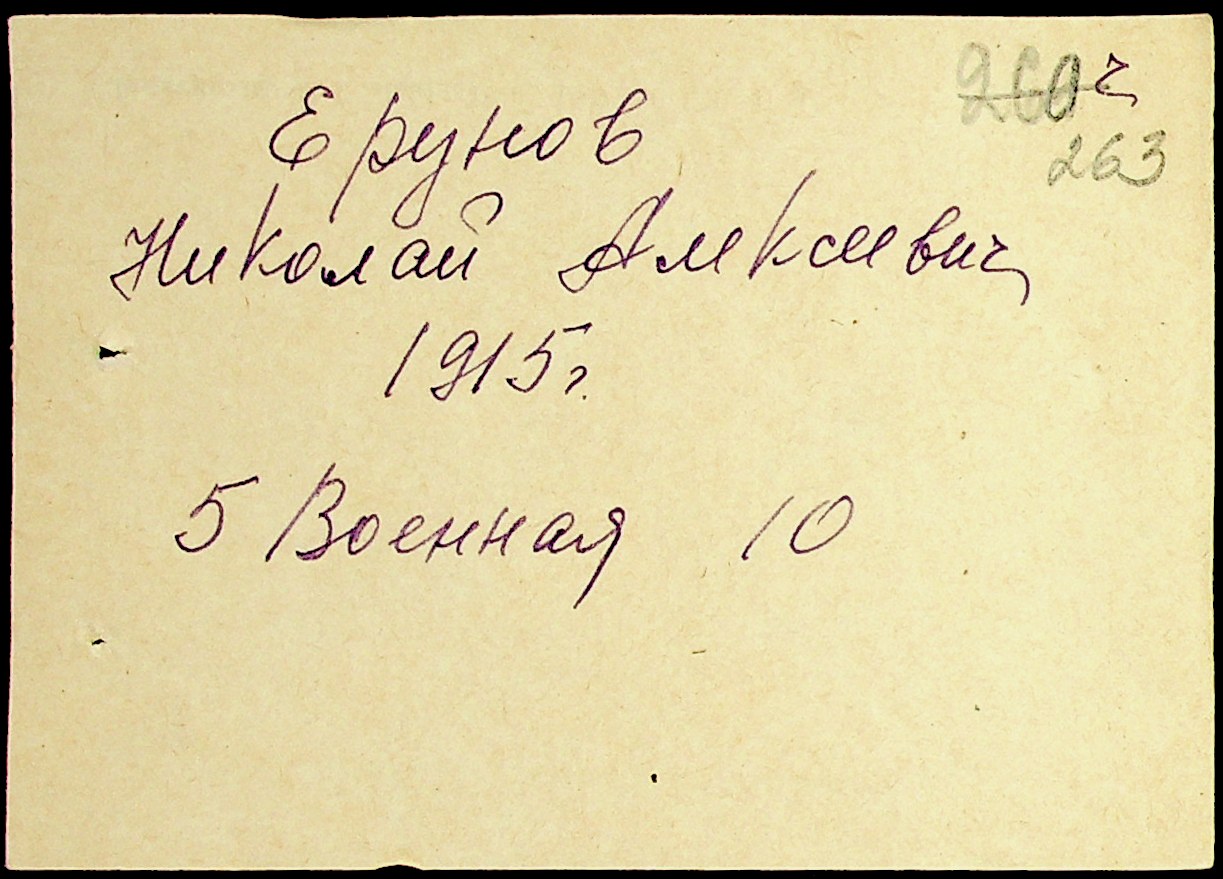 260 ч
263
Ерунов
Николай Алексеевич
1915 г.
5 Военная 10